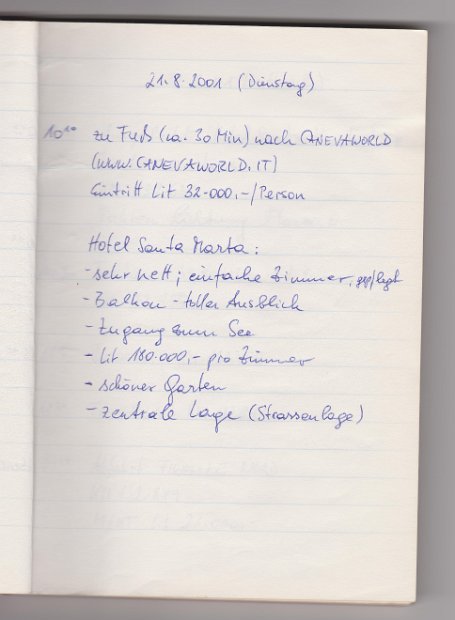 21.8.2001 (Dienstag)
10¹⁰ zu Fuß (ca. 30 Min) nach CANEVAWORLD
(WWW.CANEVAWORLD.IT)
Eintritt Lit 32.000,-/Person
Hotel Santa Marta:
- sehr nett; einfache Zimmer, gepflegt
- Balkon - toller Ausblick
- Zugang zum See
- Lit 180.000,- pro Zimmer
- schöner Garten
- zentrale Lage (Strassenlage)